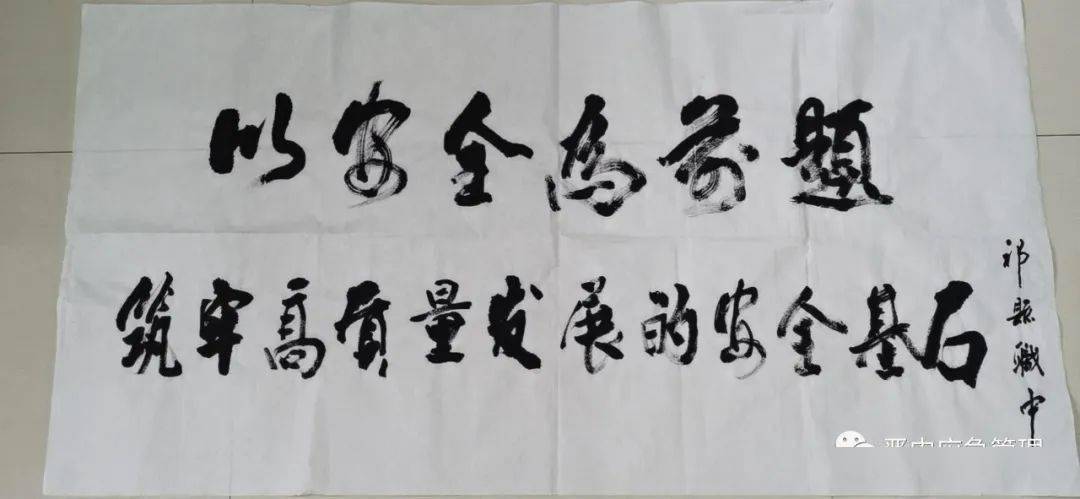 以安全為前題
筑牢高质量发展的安全基石
祁縣職中
晋中应急管理